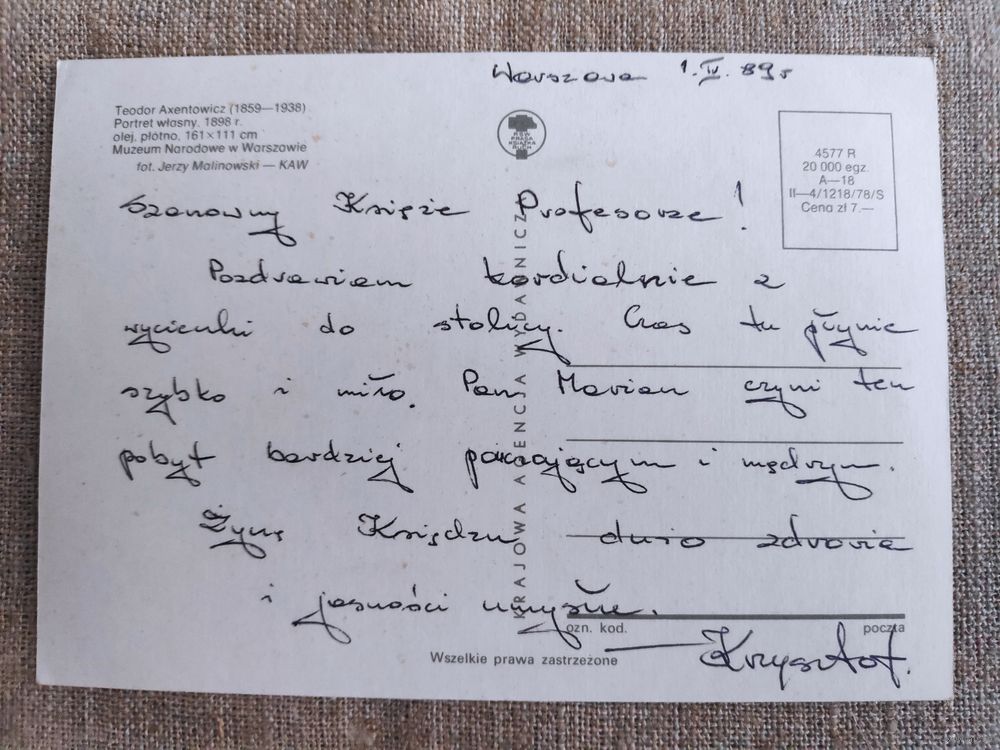 Warszawa 1.IV.89r
Teodor Axentowicz (1859—1938)
Portret własny, 1898 r.
olej, płótno, 161×111 cm
Muzeum Narodowe w Warszawie
fot. Jerzy Malinowski — KAW
4577 R
20 000 egz.
A—18
II—4/1218/78/S
Cena zł 7.—
Szanowny Księże Profesorze!
Pozdrawiam kordialnie z
wycieczki do stolicy. Czas tu płynie
szybko i miło. Pan Marian czyni ten
pobyt bardziej pouczającym i mądrym.
Życzę Księdzu dużo zdrowia
i jasności umysłu.
Krzysztof.
KRAJOWA AGENCJA WYDAWNICZA
ozn. kod. poczta
Wszelkie prawa zastrzeżone